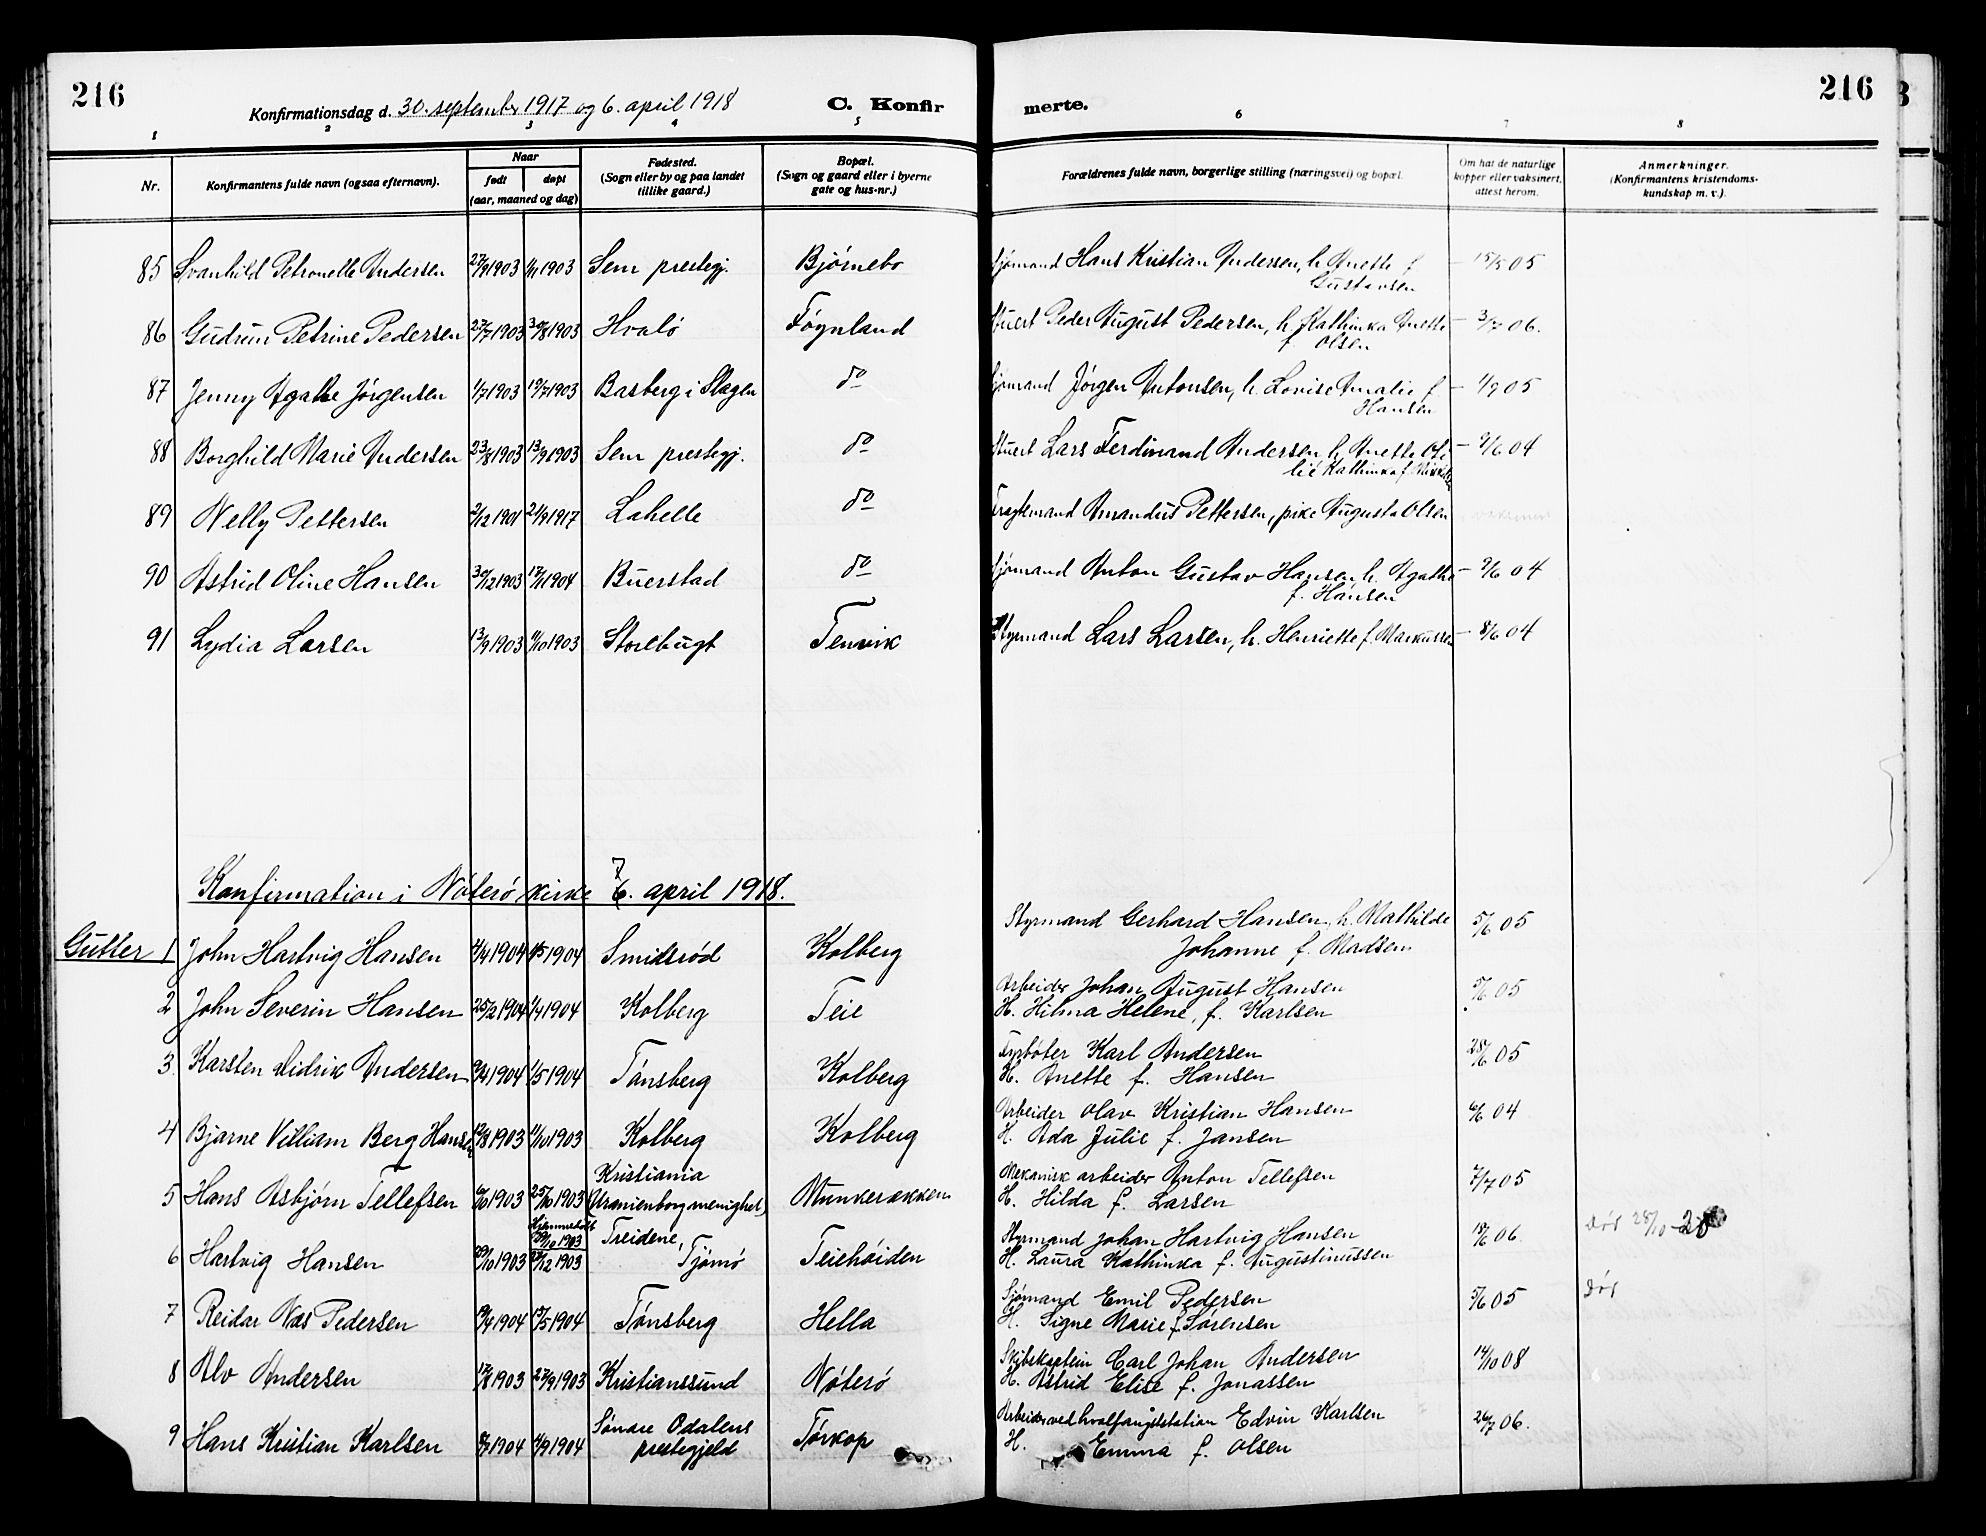 216
Konfirmationsdag d. 30. september 1917 og 6. april 1918 C. Konfir merte. 216
1 2 3 4 5 6 7 8
Nr. Konfirmantens fulde navn (ogsaa efternavn). Naar født døpt (aar, maaned og dag) Fødested. (Sogn eller by og paa landet tillike gaard.) Bopæl. (Sogn og gaard eller i byerne gate og hus-nr.) Forældrenes fulde navn, borgerlige stilling (næringsvei) og bopæl. Om hat de naturlige kopper eller vaksinert, attest herom. Anmerkninger. (Konfirmantens kristendoms-kundskap m. v.).
85 Svanhild Petronelle Andersen 27/9 1903 1/11 1903 Sem prestegj. Bjørnebo Sjømand Hans Kristian Andersen, h. Anette f. Gustavsen – 15/5 05
86 Gudrun Petrine Pedersen 27/7 1903 30/8 1903 Hvalö Føynland Stuert Peder August Pedersen, h. Kathinka Anette f. Olsen – 3/7 06.
87 Jenny Agathe Jörgensen 1/7 1903 19/7 1903 Basberg i Slagen do Sjömand Jörgen Antonsen, h. Lovise Amalie f. Hansen – 1/9 05
88 Borghild Marie Andersen 23/8 1903 13/9 1903 Sem prestegj. do Stuert Lars Ferdinand Andersen, h. Anette Otilie Kathinka f. – 9/6 04
89 Nelly Pettersen 2/12 1901 21/9 1917 Lahelle do Fragtemand Amandus Pettersen, pike Augusta Olsen
90 Astrid Oline Hansen 30/12 1903 17/1 1904 Buerstad do Sjömand Anton Gustav Hansen, h. Agathe f. Hansen – 9/6 04
91 Lydia Larsen 13/9 1903 11/10 1903 Storebugt Tenvik Styrmand Lars Larsen, h. Henriette f. Markussen – 8/6 04
Konfirmation i Nöterö kirke 7 6. april 1918.
Gutter 1 John Hartvig Hansen 4/4 1904 1904 Smidsröd Kolberg Styrmand Gerhard Hansen, h. Mathilde Johanne f. Madsen 5/6 05
2 John Severin Hansen 25/2 1904 1/4 1904 Kolberg Teie Arbeider Johan August Hansen H. Hilma Helene, f. Karlsen 5/6 05
3. Karsten Didrik Andersen 1904 1/5 1904 Tönsberg Kolberg Fyrböter Karl Andersen H. Anette f. Hansen 28/6 05
4 Bjarne Villiam Berg Hansen 1903 11/10 1903 Kolberg Kolberg Arbeider Olav Kristian Hansen H. Ada Julie f. Jansen 6/6 04
5 Hans Asbjørn Tellefsen 6/10 1903 25/10 1903 Kristiania (Uranienborg menighet) Munkerekken Mekanisk arbeider Anton Tellefsen H. Hilda f. Larsen 7/7 05
6 Hartvig Hansen 29/10 1903 Hjemmedøbt 29/10 1903 27/12 1903 Treidene, Tjömö Teiehöiden Styrmand Johan Hartvig Hansen H. Laura Kathinka f. Augustinussen 18/6 06 død 28/10 28
7 Reidar Næs Pedersen 1904 15/5 1904 Tönsberg Hella Sjömand Emil Pedersen H. Signe Marie f. Sörensen 5/6 05 død
8 Alv Andersen 17/8 1903 27/9 1903 Kristianssund Nöterö Skibskaptein Carl Johan Andersen H. Astrid Elise f. Jonassen 14/10 08
9 Hans Kristian Karlsen 1904 4/9 1904 Søndre Odalens prestegjeld Tørkop Arbeider ved hvalfangststation Edvin Karlsen H. Emma f. Olsen 26/7 06.